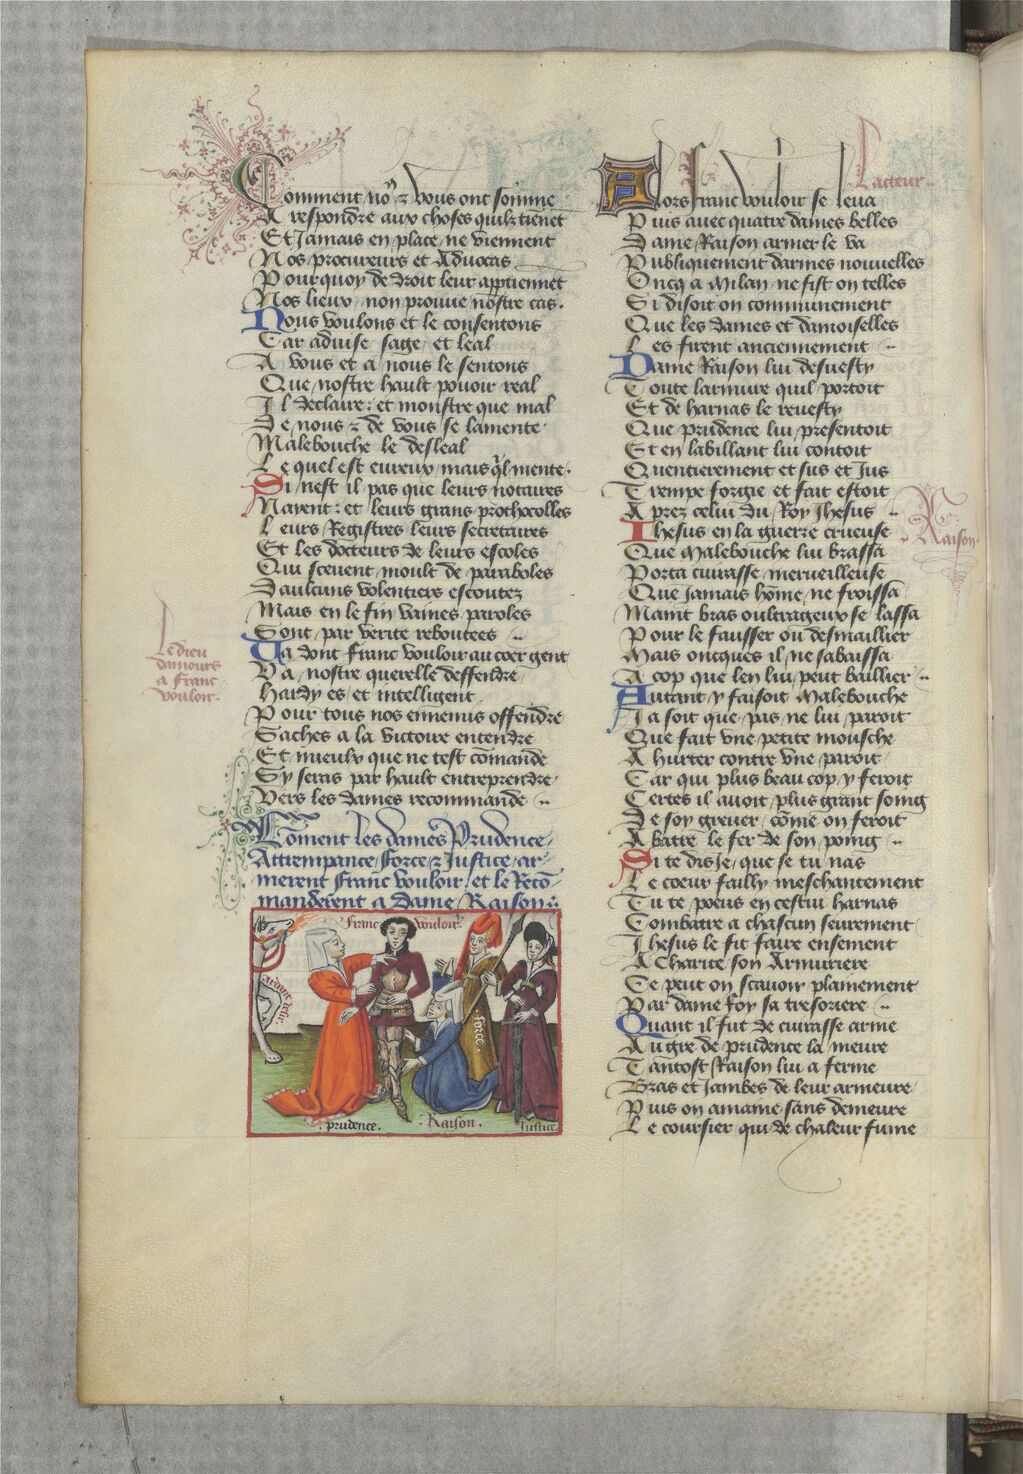 Comment noꝰ ⁊ vous ont somme
A respondre aux choses quilz tienēt
Et Jamais en place ne viennent
Nos procureurs et Aduocas
Pourquoy de droit leur apptiennēt
Nos lieux non prouue nostre cas.
Nous voulons et le consentons
Car aduise sage et leal
A vous et a nous le sentons
Que nostre hault pouoir real
Il declaire: et monstre que mal
De nous ⁊ de vous se lamente
Malebouche le desleal
Le quel est eureux mais ql mente.
Si nest il pas que leurs notaires
Nayent: et leurs grans prothocolles
Leurs Registres leurs secretaires
Et les docteurs de leurs escoles
Qui sceuent moult de paraboles
Daulcuns volentiers escoutez
Mais en le fin vaines paroles
Sont par verite reboutees
Le dieu
damours
a franc
vouloir.
Va dont franc vouloir au coer gent
Va nostre querelle deffendre
Hardy es et intelligent
Pour tous nos ennemis offendre
Saches a la victoire entendre
Et mieulx que ne test cōmande
Sy seras par hault entreprendre
Vers les dames recommande
Cōment les dames Prudence,
Attrempance, force ⁊ Justice ar-
merent franc vouloir et le Recō-
manderent a Dame Raison
franc vouloir
ardant desir
force.
prudence.
Raison.
Justice.
Lacteur
Alors franc vouloir se leua
Puis auec quatre dames belles
Dame Raison armer le va
Publiquement darmes nouuelles
Oncq a Milan ne fist on telles
Si disoit on communement
Que les dames et damoiselles
Les firent anciennement
Dame Raison lui desuesty
Toute larmure quil portoit
Et de harnas le reuesty
Que prudence lui presentoit
Et en labillant lui contoit
Quentierement et sus et Jus
Trempe forgie et fait estoit
Aprez celui du Roy Jhesus
Raison.
Jhesus en la guerre crueuse
Que Malebouche lui brassa
Porta cuirasse merueilleuse
Que Jamais hōme ne froissa
Maint bras oultrageux se lassa
Pour le fausser ou desmaillier
Mais oncques il ne sabaissa
A cop que len lui peut baillier
Autant y faisoit Malebouche
Ja soit que pas ne lui paroit
Que fait vne petite mousche
A hurter contre vne paroit
Car qui plus beau cop y feroit
Certes il auoit plus grant soing
De soy greuer cōme on feroit
A batre le fer de son poing
Si te dis Je, que se tu nas
Le coeur failly meschantement
Tu te poeus en cestui harnas
Combatre a chascun seurement
Jhesus le fit faire ensement
A Charite son Armuriere
Ce peut on scauoir plainement
Par dame foy sa tresoriere
Quant il fut de cuirasse arme
Au gre de prudence la meure
Tantost Raison lui a ferme
Bras et Jambes de leur armeure
Puis on amaine sans demeure
Le coursier qui de chaleur fume